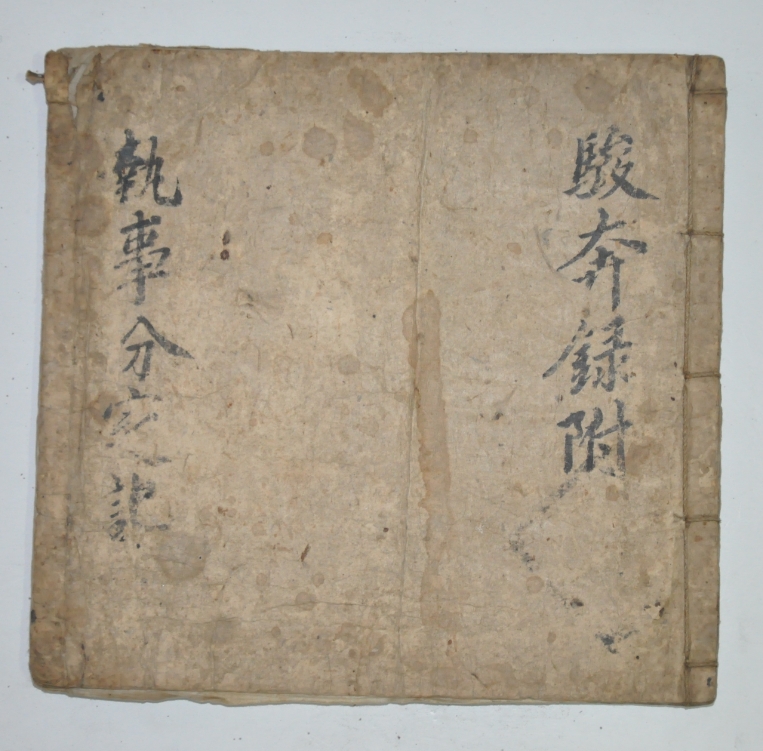 駿奔錄附
執事分定記